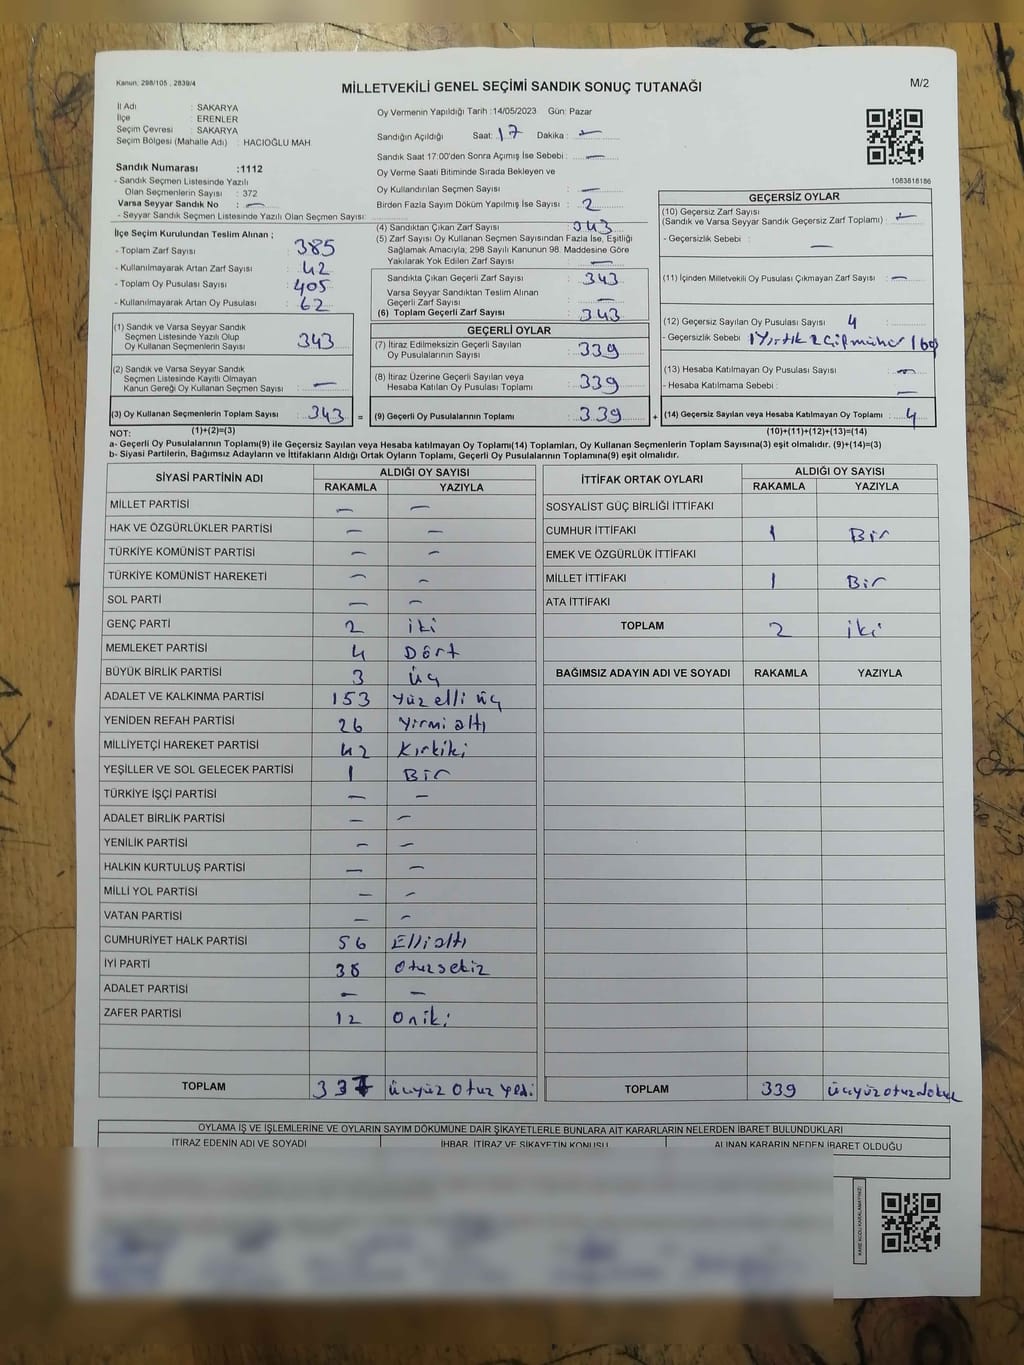 Kanun: 298/105 , 2839/4
MİLLETVEKİLİ GENEL SEÇİMİ SANDIK SONUÇ TUTANAĞI
M/2
İl Adı : SAKARYA
İlçe : ERENLER
Seçim Çevresi : SAKARYA
Seçim Bölgesi (Mahalle Adı) : HACIOĞLU MAH.
Sandık Numarası :1112
- Sandık Seçmen Listesinde Yazılı
Olan Seçmenlerin Sayısı : 372
Varsa Seyyar Sandık No : —
- Seyyar Sandık Seçmen Listesinde Yazılı Olan Seçmen Sayısı:
İlçe Seçim Kurulundan Teslim Alınan ;
- Toplam Zarf Sayısı : 385
- Kullanılmayarak Artan Zarf Sayısı : 42
- Toplam Oy Pusulası Sayısı : 405
- Kullanılmayarak Artan Oy Pusulası : 62
(1) Sandık ve Varsa Seyyar Sandık
Seçmen Listesinde Yazılı Olup
Oy Kullanan Seçmenlerin Sayısı : 343
(2) Sandık ve Varsa Seyyar Sandık
Seçmen Listesinde Kayıtlı Olmayan
Kanun Gereği Oy Kullanan Seçmen Sayısı : —
(3) Oy Kullanan Seçmenlerin Toplam Sayısı : 343 =
(1)+(2)=(3)
Oy Vermenin Yapıldığı Tarih :14/05/2023 Gün: Pazar
Sandığın Açıldığı Saat: 17 Dakika : —
Sandık Saat 17:00'den Sonra Açımış İse Sebebi : —
Oy Verme Saati Bitiminde Sırada Bekleyen ve
Oy Kullandırılan Seçmen Sayısı : —
Birden Fazla Sayım Döküm Yapılmış İse Sayısı : 2
(4) Sandıktan Çıkan Zarf Sayısı : 343
(5) Zarf Sayısı Oy Kullanan Seçmen Sayısından Fazla İse, Eşitliği
Sağlamak Amacıyla; 298 Sayılı Kanunun 98. Maddesine Göre
Yakılarak Yok Edilen Zarf Sayısı : —
Sandıkta Çıkan Geçerli Zarf Sayısı : 343
Varsa Seyyar Sandıktan Teslim Alınan
Geçerli Zarf Sayısı : —
(6) Toplam Geçerli Zarf Sayısı : 343
GEÇERLİ OYLAR
(7) İtiraz Edilmeksizin Geçerli Sayılan
Oy Pusulalarının Sayısı : 339
(8) İtiraz Üzerine Geçerli Sayılan veya
Hesaba Katılan Oy Pusulası Toplamı : 339
(9) Geçerli Oy Pusulalarının Toplamı : 339 +
1083818186
GEÇERSİZ OYLAR
(10) Geçersiz Zarf Sayısı
(Sandık ve Varsa Seyyar Sandık Geçersiz Zarf Toplamı) : —
- Geçersizlik Sebebi : —
(11) İçinden Milletvekili Oy Pusulası Çıkmayan Zarf Sayısı : —
(12) Geçersiz Sayılan Oy Pusulası Sayısı : 4
- Geçersizlik Sebebi : 1 Yırtık 2 Çift mühür 1
(13) Hesaba Katılmayan Oy Pusulası Sayısı : —
- Hesaba Katılmama Sebebi : —
(14) Geçersiz Sayılan veya Hesaba Katılmayan Oy Toplamı : 4
(10)+(11)+(12)+(13)=(14)
NOT:
a- Geçerli Oy Pusulalarının Toplamı(9) ile Geçersiz Sayılan veya Hesaba katılmayan Oy Toplamı(14) Toplamları, Oy Kullanan Seçmenlerin Toplam Sayısına(3) eşit olmalıdır. (9)+(14)=(3)
b- Siyasi Partilerin, Bağımsız Adayların ve İttifakların Aldığı Ortak Oyların Toplamı, Geçerli Oy Pusulalarının Toplamına(9) eşit olmalıdır.
SİYASİ PARTİNİN ADI ALDIĞI OY SAYISI
RAKAMLA YAZIYLA
MİLLET PARTİSİ — —
HAK VE ÖZGÜRLÜKLER PARTİSİ — —
TÜRKİYE KOMÜNİST PARTİSİ — —
TÜRKİYE KOMÜNİST HAREKETİ — —
SOL PARTİ — —
GENÇ PARTİ 2 iki
MEMLEKET PARTİSİ 4 Dört
BÜYÜK BİRLİK PARTİSİ 3 üç
ADALET VE KALKINMA PARTİSİ 153 Yüz elli üç
YENİDEN REFAH PARTİSİ 26 Yirmi altı
MİLLİYETÇİ HAREKET PARTİSİ 42 Kırkiki
YEŞİLLER VE SOL GELECEK PARTİSİ 1 Bir
TÜRKİYE İŞÇİ PARTİSİ — —
ADALET BİRLİK PARTİSİ — —
YENİLİK PARTİSİ — —
HALKIN KURTULUŞ PARTİSİ — —
MİLLİ YOL PARTİSİ — —
VATAN PARTİSİ — —
CUMHURİYET HALK PARTİSİ 56 Elli altı
İYİ PARTİ 38 Otuzsekiz
ADALET PARTİSİ — —
ZAFER PARTİSİ 12 Oniki
TOPLAM 337 üçyüz otuz yedi
İTTİFAK ORTAK OYLARI ALDIĞI OY SAYISI
RAKAMLA YAZIYLA
SOSYALİST GÜÇ BİRLİĞİ İTTİFAKI
CUMHUR İTTİFAKI 1 Bir
EMEK VE ÖZGÜRLÜK İTTİFAKI
MİLLET İTTİFAKI 1 Bir
ATA İTTİFAKI
TOPLAM 2 iki
BAĞIMSIZ ADAYIN ADI VE SOYADI RAKAMLA YAZIYLA
TOPLAM 339 üçyüzotuzdokuz
OYLAMA İŞ VE İŞLEMLERİNE VE OYLARIN SAYIM DÖKÜMÜNE DAİR ŞİKAYETLERLE BUNLARA AİT KARARLARIN NELERDEN İBARET BULUNDUKLARI
İTİRAZ EDENİN ADI VE SOYADI İHBAR, İTİRAZ VE ŞİKAYETİN KONUSU ALINAN KARARIN NEDEN İBARET OLDUĞU
KARE KODU KARALAMAYINIZ